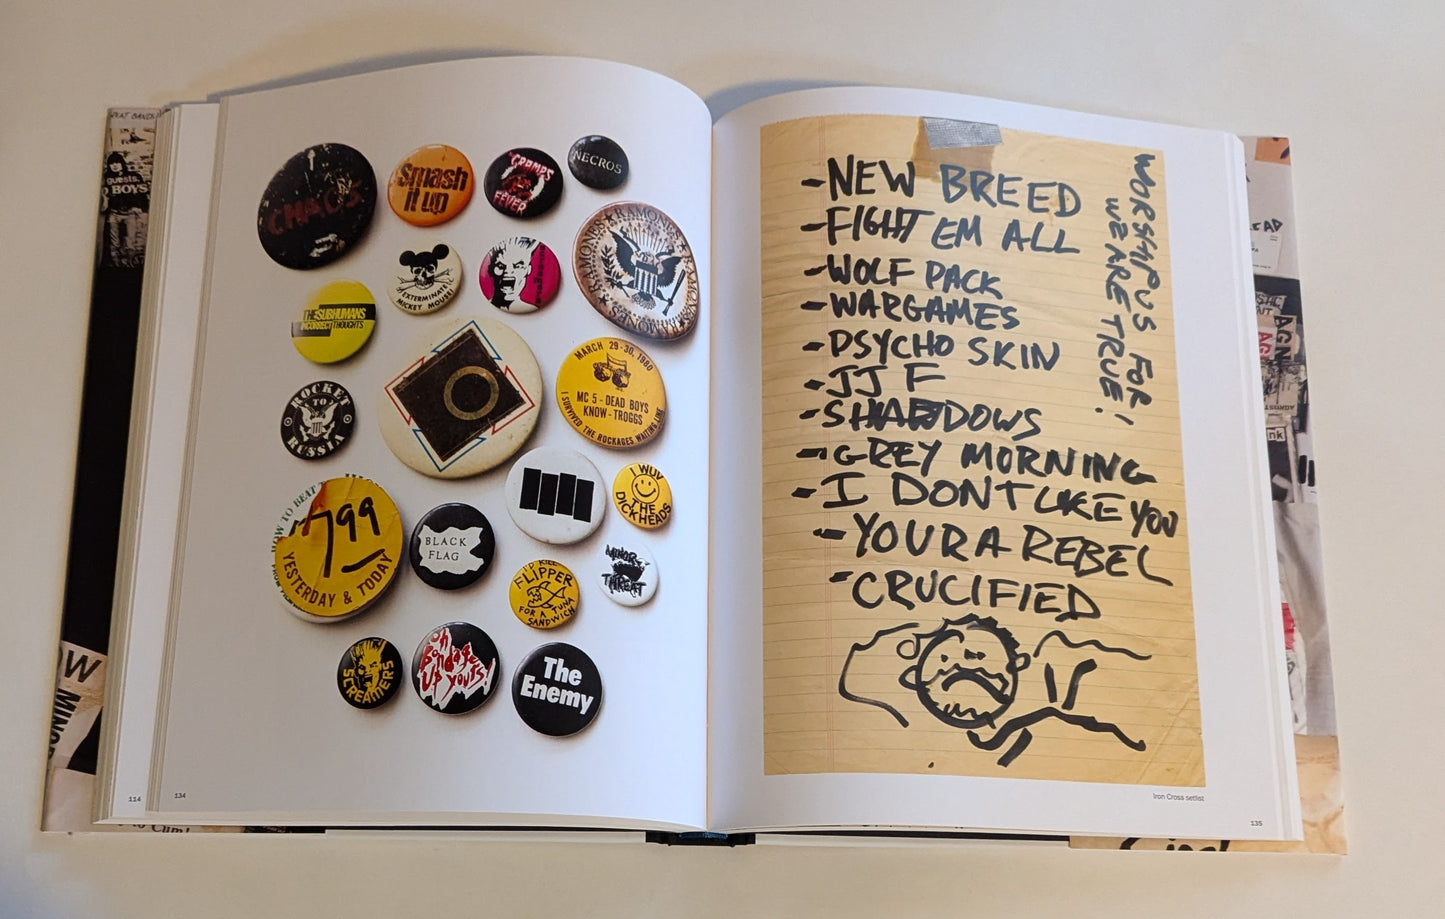 guests.
BOYS
CHAOS
Smash
it up
CRAMPS
FEVER
NECROS
EXTERMINATE
MICKEY MOUSE!
SCREAMERS
RAMONES RAMONES RAMONES
THE SUBHUMANS
INCORRECT THOUGHTS
MARCH 29-30, 1980
MC 5 - DEAD BOYS
KNOW - TROGGS
I SURVIVED THE ROCKAGES WAITING LINE
ROCKET
TO
RUSSIA
I WUV
THE
DICKHEADS
HOW TO BEAT
799
YESTERDAY & TODAY
BLACK
FLAG
I'D KILL
FLIPPER
FOR A TUNA
SANDWICH
MINOR
THREAT
SCREAMERS
oh
Bondage
UP
YOURS!
The
Enemy
114
134
- NEW BREED
- FIGHT EM ALL
- WOLF PACK
- WARGAMES
- PSYCHO SKIN
- JJ F
- SHADOWS
- GREY MORNING
- I DONT LIKE YOU
- YOUR A REBEL
- CRUCIFIED
WORSHIP US FOR
WE ARE TRUE!
Iron Cross setlist
135